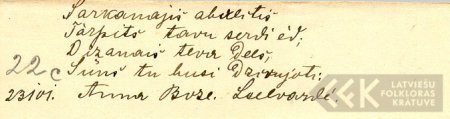 Sarkanajis abolitis
Tārpits tavu serdi ēd,
Dižanais tēva dēls,
Sūns tu būsi Dzīvojoti.
22c
23101. Anna Boze. Lielvārdē.
LATVIEŠU
FOLKLORAS
KRĀTUVE